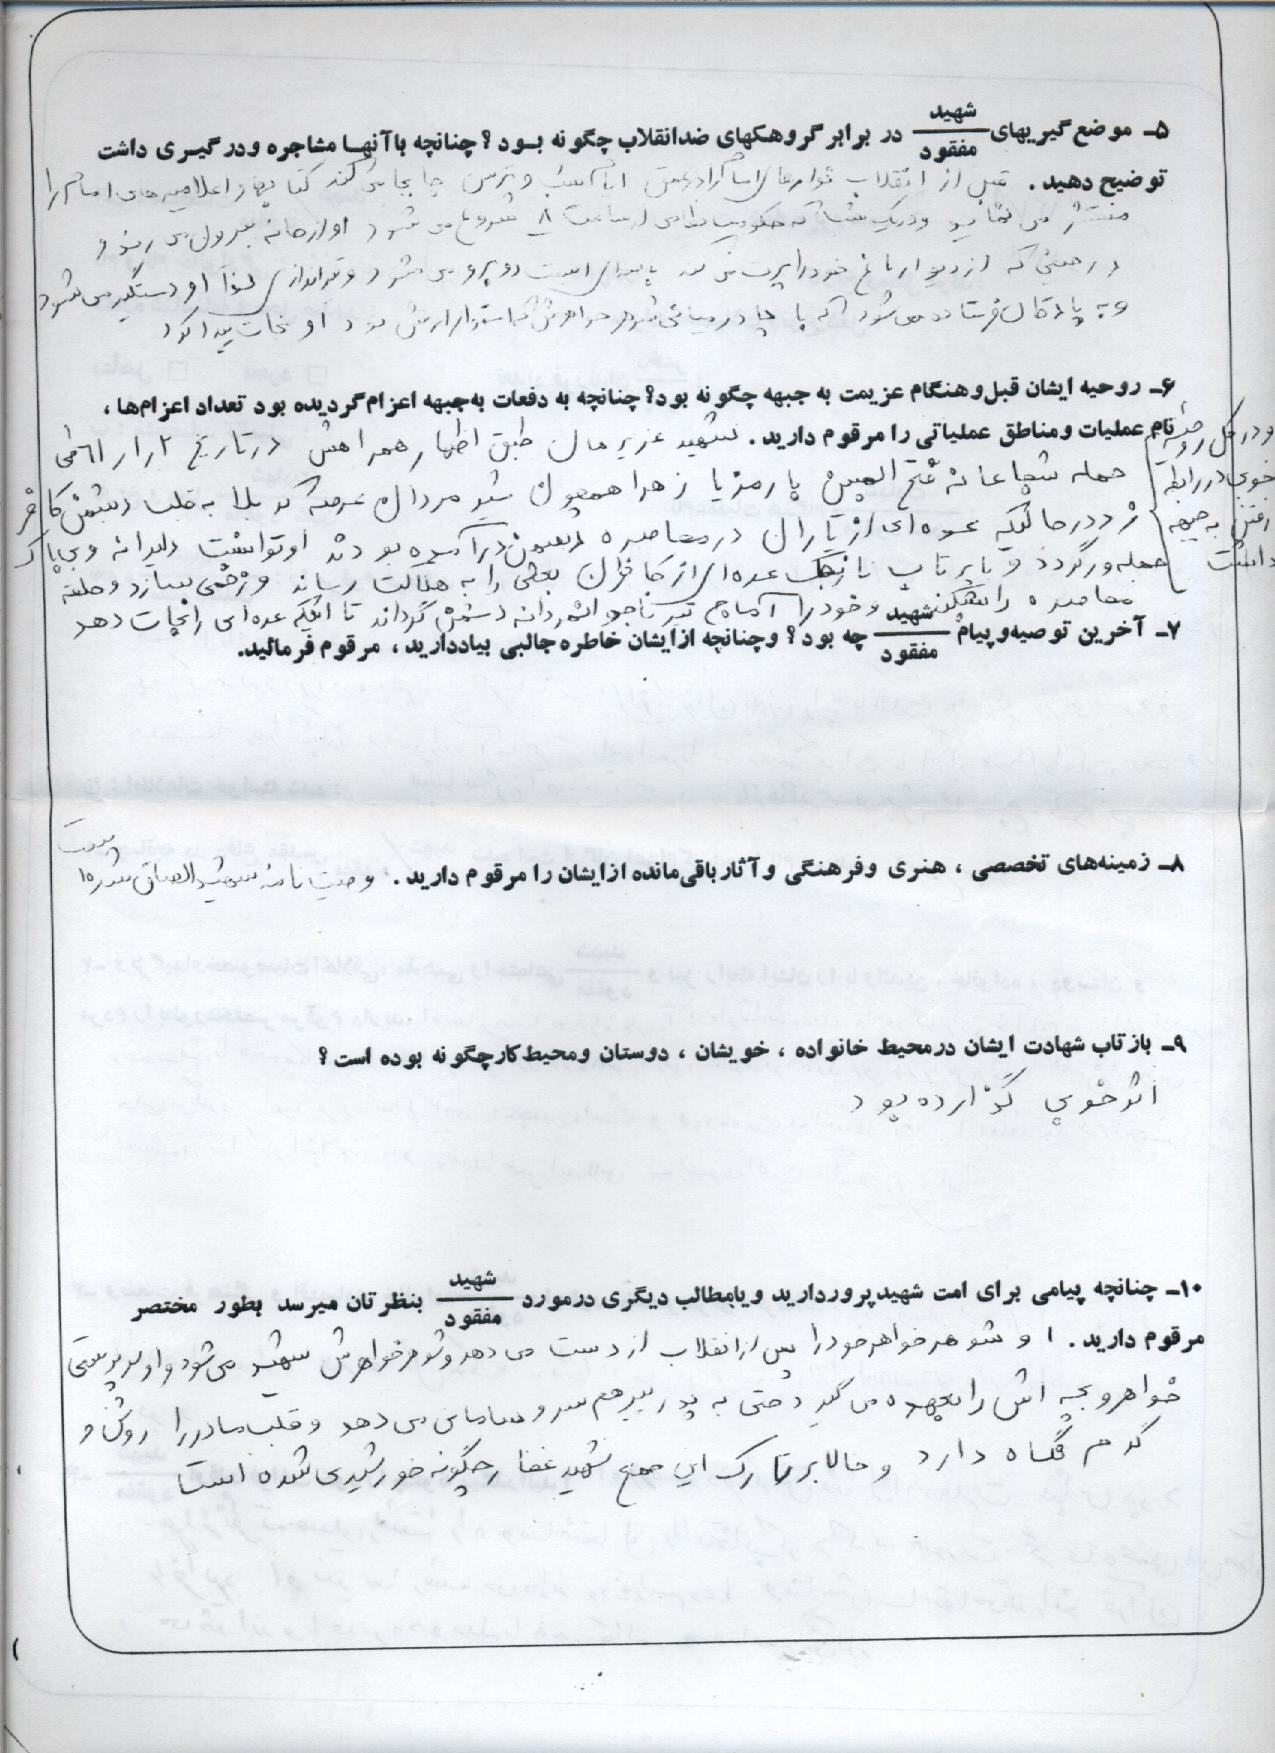 ۵ـ موضع گیریهای شهید / مفقود در برابر گروهکهای ضدانقلاب چگونه بود؟ چنانچه با آنها مشاجره و درگیری داشت
توضیح دهید. قبل از انقلاب نوارهای امام را در عمق شب و پرس جابجا می‌کند کتابها و اعلامیه‌های امام را
منتشر می نماید و در یک شب که حکومت نظامی از ساعت ۸ شروع می شود او از خانه بیرون می رود و
در حینی که از دیوار باغ خود را پرت می کند با روبرو می شود و تیراندازی لذا او دستگیر می شود
و به پادگان فرستاده می شود که با پا در میانی شوهر خواهرش که استوار ارتش بود او نجات پیدا کرد
۶ـ روحیه ایشان قبل و هنگام عزیمت به جبهه چگونه بود؟ چنانچه به دفعات به جبهه اعزام گردیده بود تعداد اعزام‌ها،
نام عملیات و مناطق عملیاتی را مرقوم دارید. شهید عزیزمان طبق اظهار همراهش در تاریخ ۲ر۱ر۶۱ طی
حمله شجاعانه فتح المبین با رمز یا زهرا همچون شیر مردان عرصه کربلا به قلب دشمن کافر
زد در حالیکه عده ای از یاران در محاصره دشمن درآمده بودند او توانست دلیرانه و بی باک
حمله ور گردد و با پرتاب نارنجک عده ای از کافران بعثی را به هلاکت رساند و زخمی سازد و حلقه
محاصره را بشکند و خود را آماج تیر ناجوانمردانه دشمن گرداند تا اینکه عده ای را نجات دهد
و در کل روحیه
خوبی در رابطه
رفتن به جبهه
داشت
۷ـ آخرین توصیه و پیام شهید / مفقود چه بود؟ و چنانچه از ایشان خاطره جالبی بیاد دارید، مرقوم فرمائید.
۸ـ زمینه‌های تخصصی، هنری و فرهنگی و آثار باقی‌مانده از ایشان را مرقوم دارید. وصیت نامه شهید الصاق شده است
۹ـ بازتاب شهادت ایشان در محیط خانواده، خویشان، دوستان و محیط کار چگونه بوده است؟
اثر خوبی گذارده بود
۱۰ـ چنانچه پیامی برای امت شهیدپرور دارید و یا مطالب دیگری در مورد شهید / مفقود بنظرتان میرسد بطور مختصر
مرقوم دارید. او شوهر خواهر خود را پس از انقلاب از دست می دهد و شوهر خواهرش شهید می شود و او سرپرستی
خواهر و بچه اش را بعهده می گیرد حتی به پدر پیر هم سر و سامان می دهد و قلب مادر را روشن و
گرم نگاه دارد و حالا بر تارک این جمع شهید غفار چگونه خورشیدی شده است